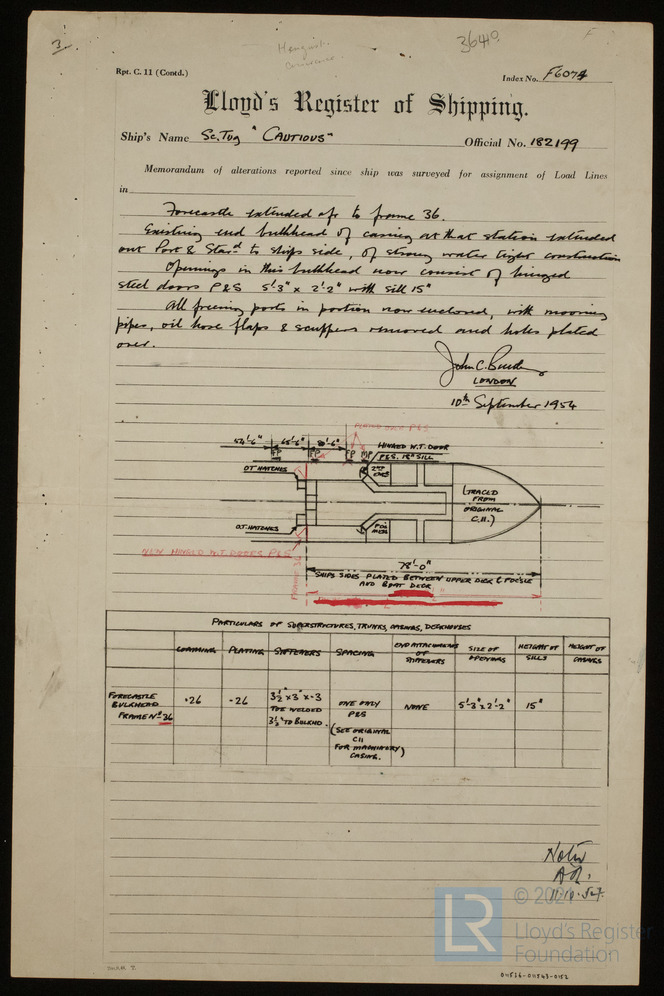 3.
3640
F
Rpt. C. 11 (Contd.)
Index No. F6074
Lloyd's Register of Shipping.
Ship's Name Sc. Tug "CAUTIOUS"
Official No. 182199
Memorandum of alterations reported since ship was surveyed for assignment of Load Lines
in
Forecastle extended aft to frame 36.
Existing end bulkhead of casing at that station extended
out Port & Starᵈ to ships side, of strong water tight construction
Openings in this bulkhead now consist of hinged
steel doors P&S 5'3" x 2'2" with sill 15"
All freeing ports in portion now enclosed, with mooring
pipes, oil hose flaps & scuppers removed and holes plated
over.
LONDON
10th September 1954
PLATED OVER P&S
54'-6" 65'-6" 80'-6"
HINGED W.T. DOOR
P&S. 15" SILL
FP FP FP MP
O.T. HATCHES
(TRACED
FROM
ORIGINAL
C.11.)
O.T. HATCHES
NEW HINGED W.T. DOORS. P&S
FRAME 36
78'-0"
SHIPS SIDES PLATED BETWEEN UPPER DECK & FOC'SLE
AND BOAT DECK
PARTICULARS OF SUPERSTRUCTURES, TRUNKS, CASINGS, DECKHOUSES
COAMING PLATING STIFFENERS SPACING END ATTACHMENTS OF STIFFENERS SIZE OF OPENINGS HEIGHT OF SILLS HEIGHT OF CASINGS
FORECASTLE BULKHEAD FRAME Nº 36
·26 ·26
3½"x3"x·3 TOE WELDED 3½" TO BULKHD.
ONE ONLY P&S (SEE ORIGINAL C11 FOR MACHINERY CASING.)
NONE
5'-3"x2'-2"
15"
Noted
11·10·54
© 2021
LR
Lloyd's Register
Foundation